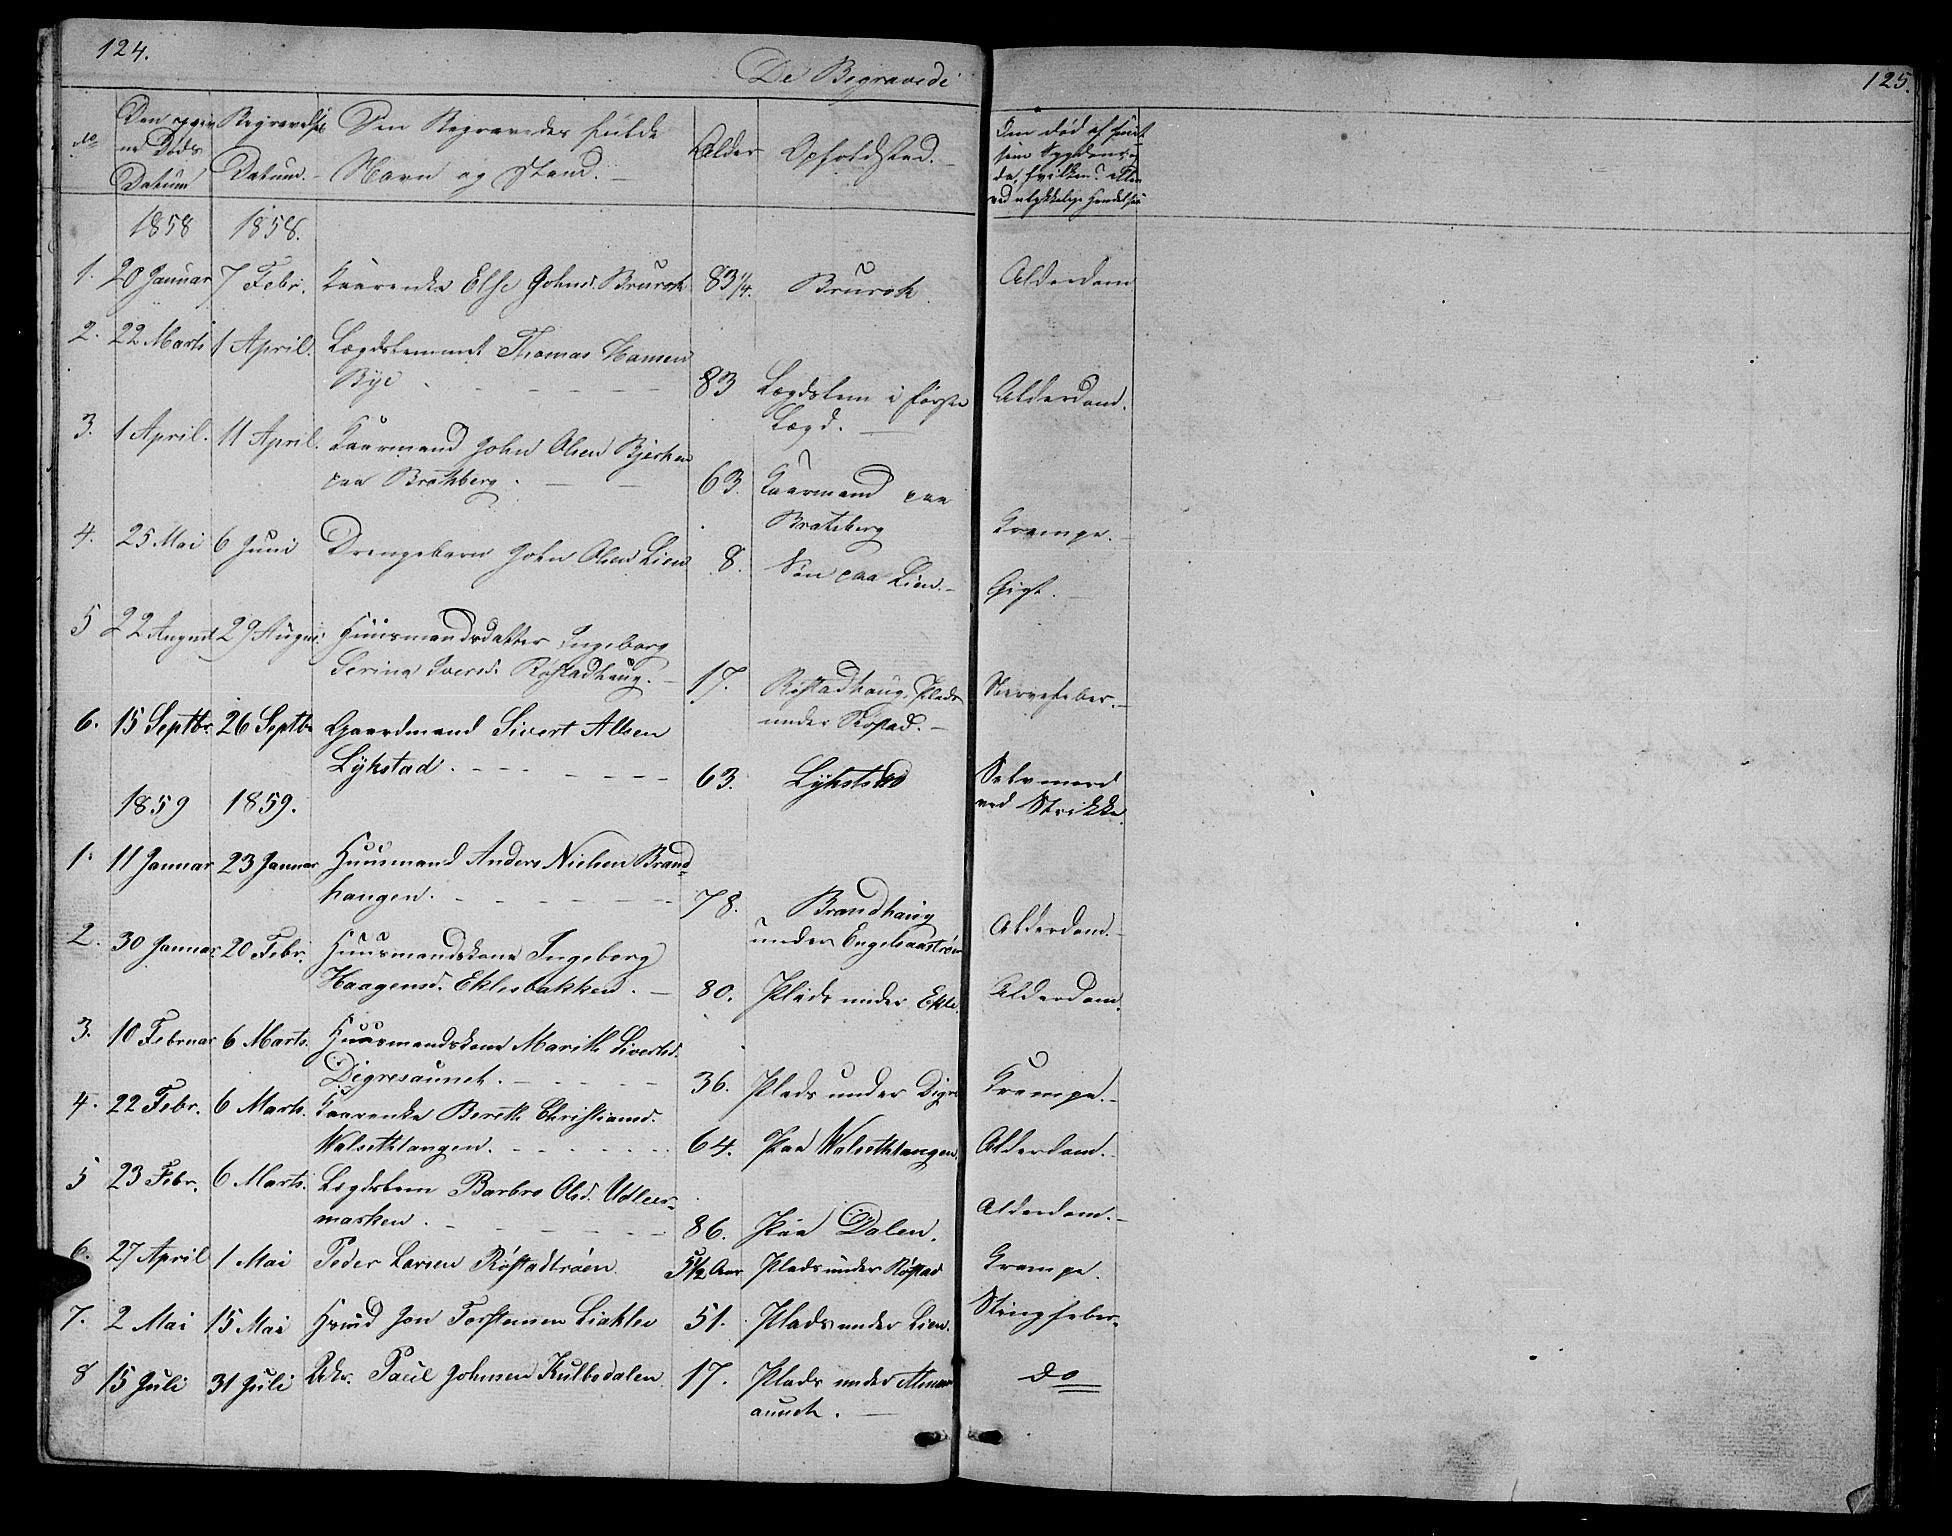 124.
De Begravede
125.
No
Den
ne Døds
Datum
Begravelses
Datum.
Den Begravedes fulde
Navn og Stand.
Alder
Opholdssted.
Om død af
som Sygdom og
da hvilken? eller
ved ulykkelige Hændelser
1858 1858.
1. 20 Januar 7 Febr. Kaarenke Else Johnsd. Brurok 83 1/4. Brurok. Alderdom
2. 22 Marts 1 April. Lægdslemmet Thomas Hansen
Bye 83 Lægdslem i første
Lægd. Alderdom.
3. 1 April. 11 April. Kaarmand John Olsen Bjerken
paa Bratsberg. 63. Kaarmand paa
Bratsberg Krampe.
4. 25 Mai 6 Juni Drengebarn John Olsen Lien 8. Søn paa Lien. Gigt.
5 22 August 29 August Huusmandsdatter Ingeborg
Serina Iversd. Røstadhaug. 17. Røstadhaug, Plads
under Røstad. Nervefeber.
6. 15 Septbr. 26 Septbr Gaardmand Sivert Albsen
Lykstad. 63. Lykstad Selvmord
ved Strikke.
1859 1859.
1. 11 Januar 23 Januar Huusmand Anders Nielsen Brand-
haugen. 78. Brandhaug
under Engelsaastrøen Alderdom.
2. 30 Januar 20 Febr. Huusmandskone Ingeborg
Haagensd. Eklesbakken. 80. Plads under Ekle. Alderdom.
3. 10 Februar 6 Marts. Huusmandskone Marith Sivertsd.
Digresaunet. 36. Plads under Digre Krampe.
4. 22 Febr. 6 Marts. Kaarenke Berith Christiansd.
Walsethtangen. 64. Paa Walsethtangen. Alderdom.
5 23 Febr. 6 Marts. Legdslem Barbro Olsd. Udleer-
marken. 86. Paa Dalen. Alderdom.
6. 27 April 1 Mai Peder Larsen Røstadtrøen. 5 1/2 Aar Plads under Røstad Krampe.
7. 2 Mai 15 Mai Jon Torstensen Liaklev 51. Plads under Lien. Stingfeber.
8 15 Juli 31 Juli Paul Johnsen Kulbodalen. 17. Plads under
aunet. do